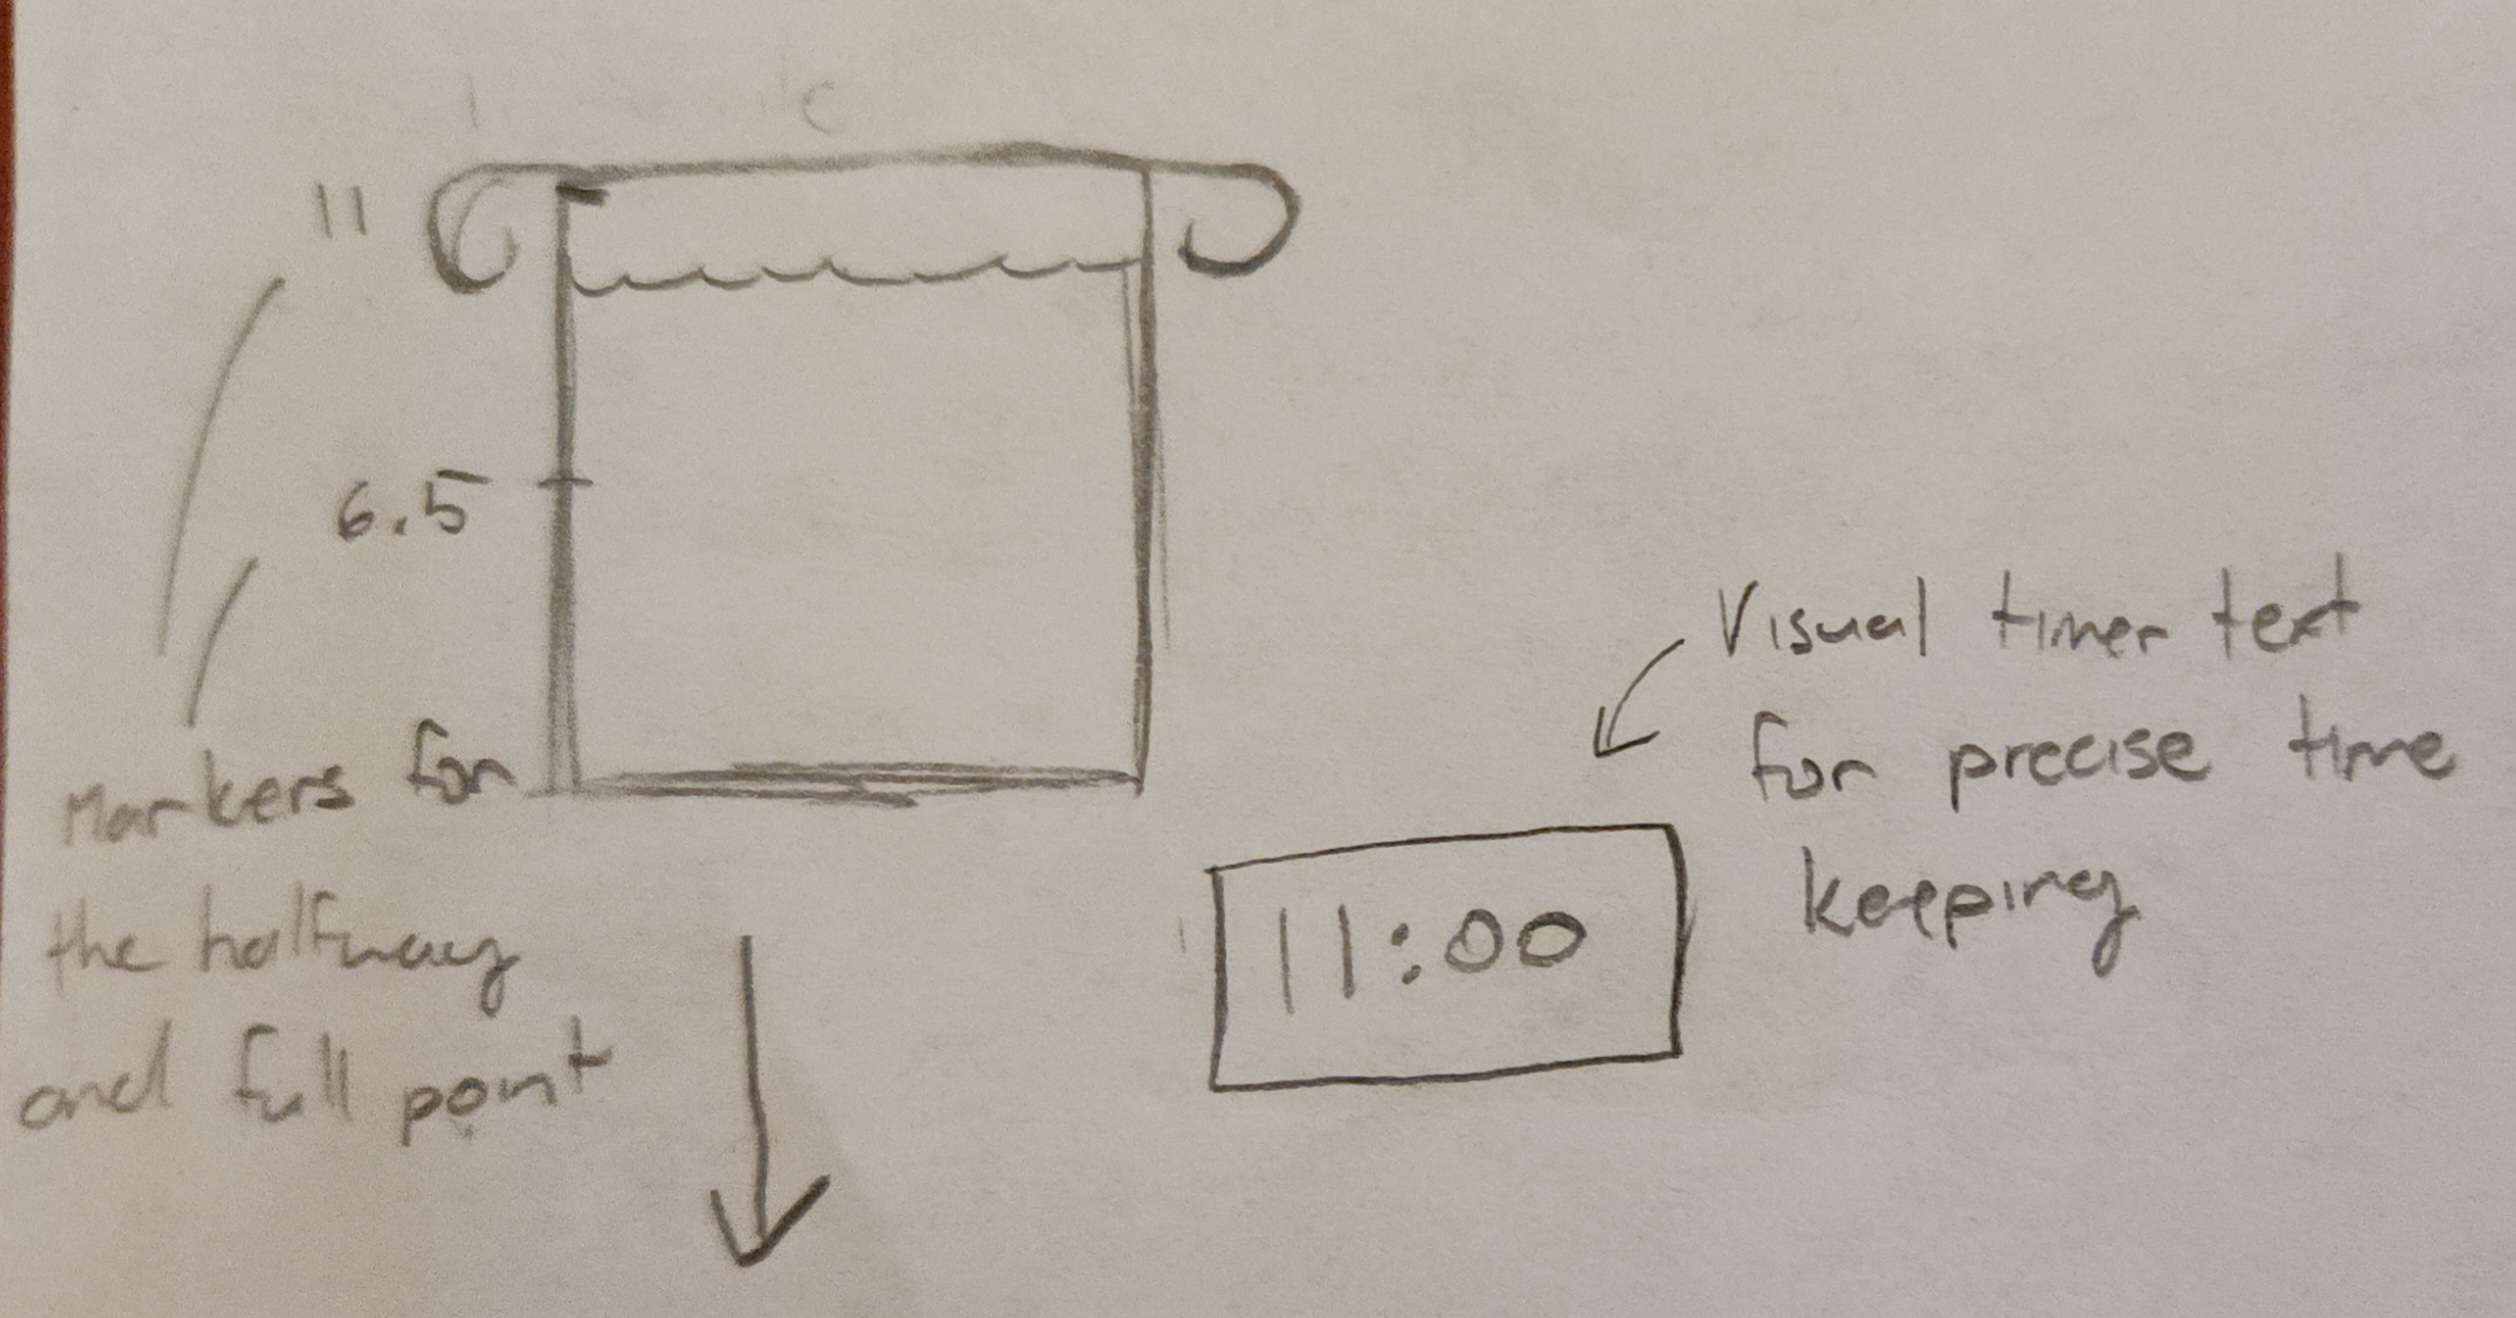 11
6.5
Markers for
the halfway
and full point
Visual timer text
for precise time
keeping
11:00